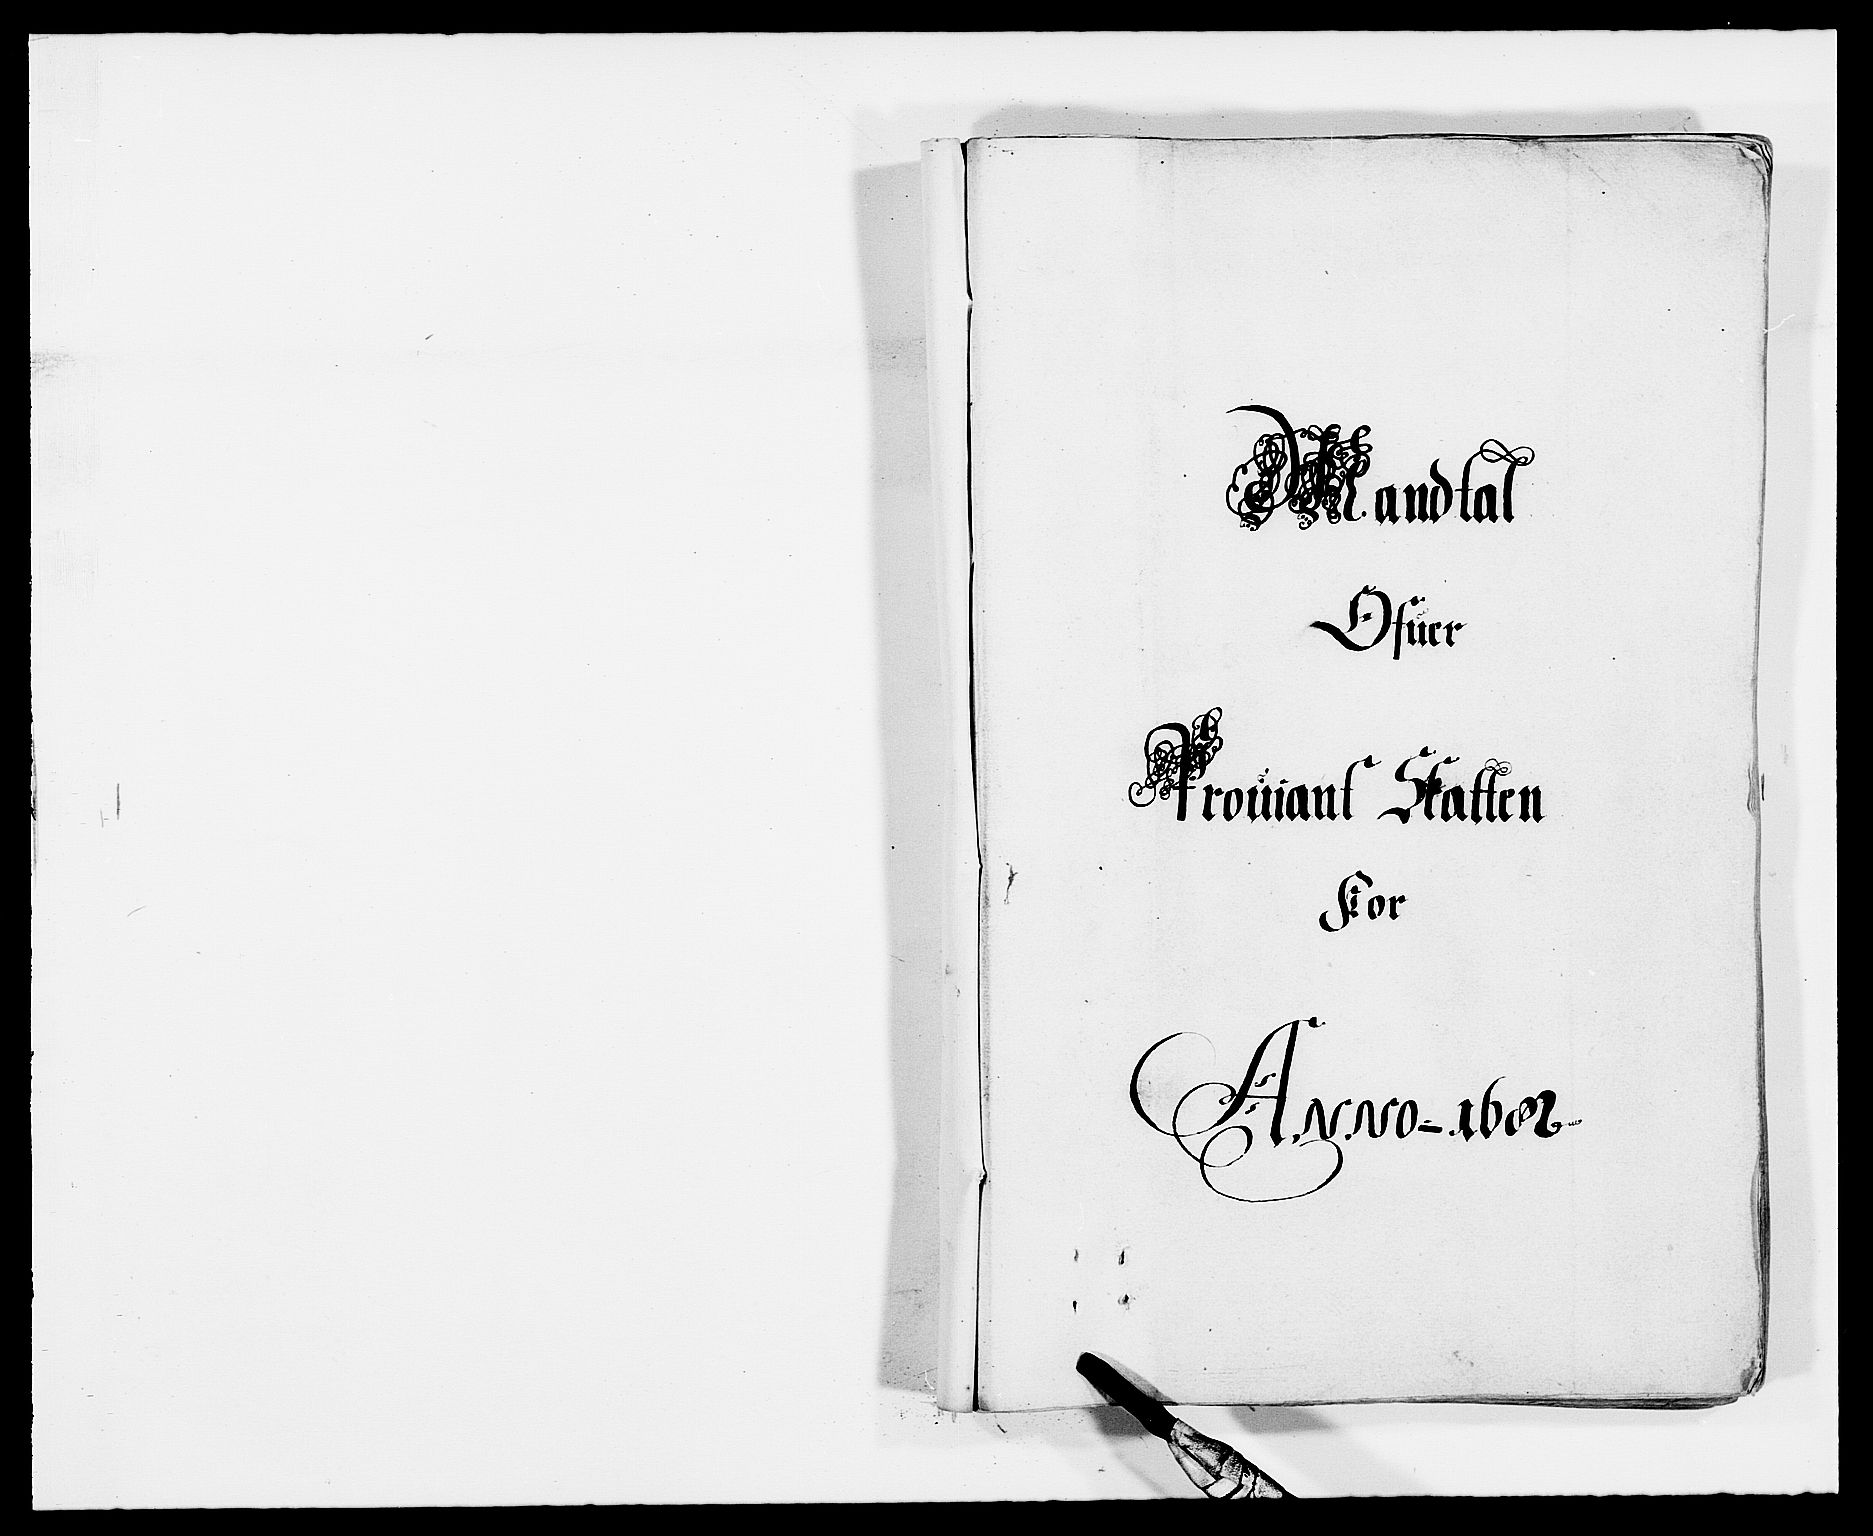 Mandtal
Ofuer
Prouiant Skatten
For
Anno - 1682